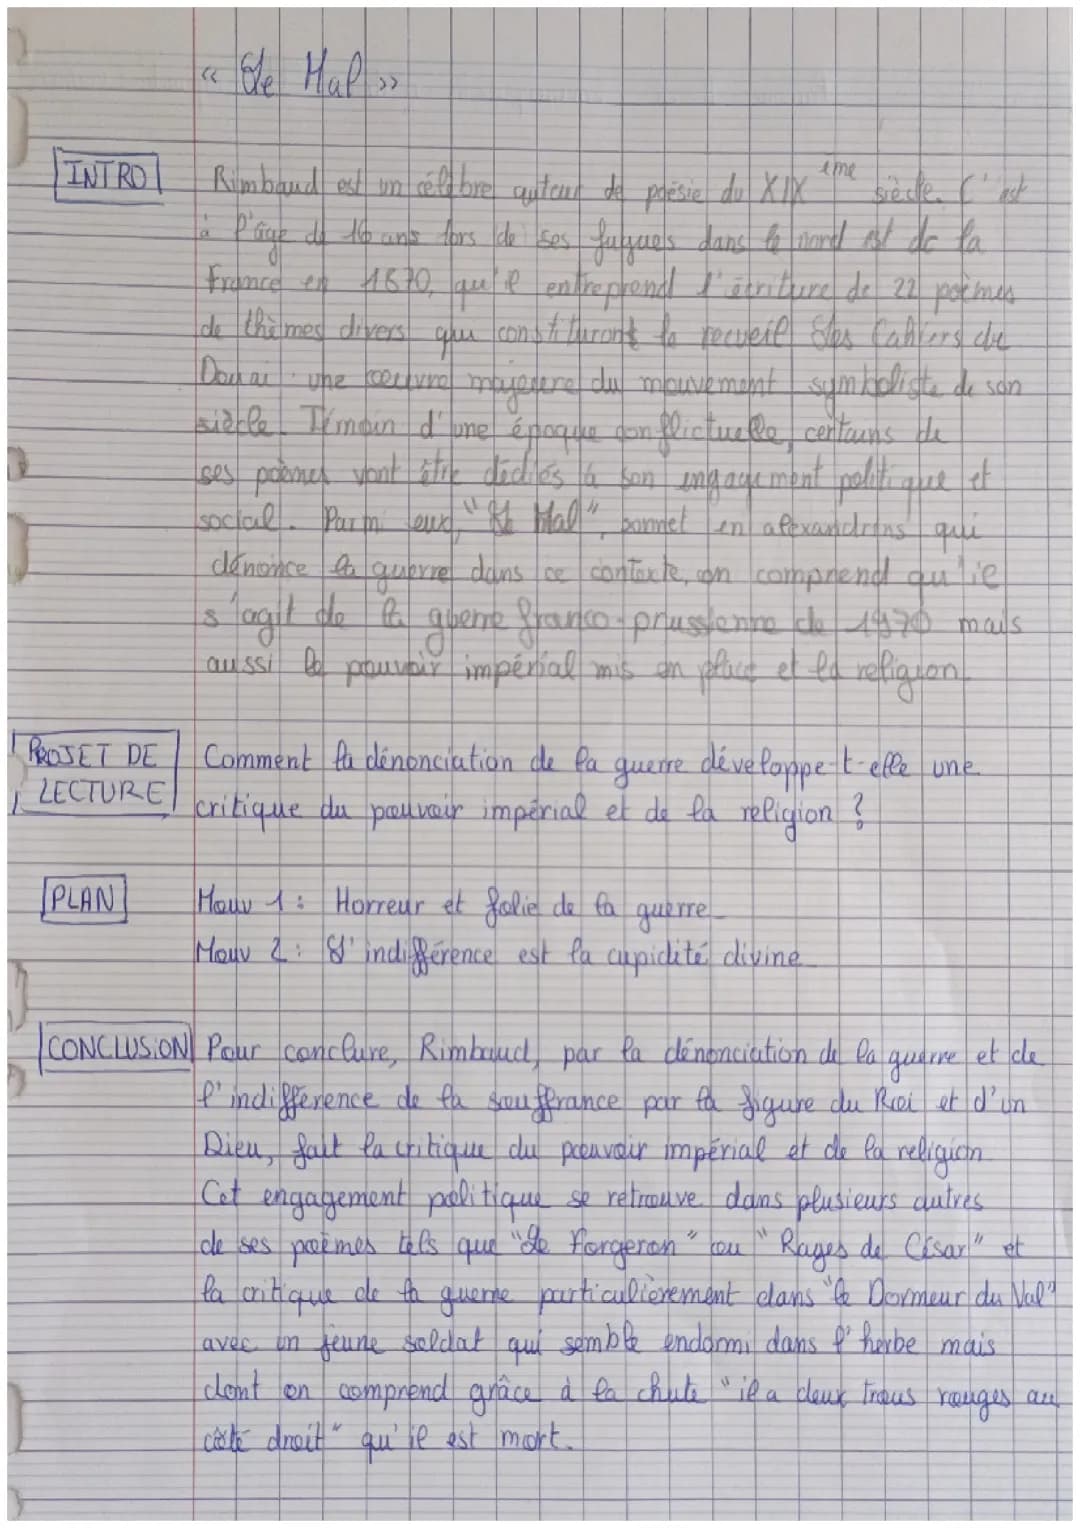 « Le Mal »
INTRO Rimbaud est un célèbre auteur de poésie du XIX ème siècle. C'est
à l'âge de 16 ans lors de ses fugues dans le nord est de la
France en 1870, qu'il entreprend l'écriture de 22 poèmes
de thèmes divers qui constituront le recueil Les Cahiers de
Douai une oeuvre majeure du mouvement symboliste de son
siècle. Témoin d'une époque conflictuelle, certains de
ses poèmes vont être dédiés à son engagement politique et
social. Parmi eux, "Le Mal", sonnet en alexandrins qui
dénonce la guerre dans ce contexte, on comprend qu'il
s'agit de la guerre franco-prussienne de 1970 mais
aussi le pouvoir impérial mis en place et la religion.
PROJET DE Comment la dénonciation de la guerre développe-t-elle une
LECTURE critique du pouvoir impérial et de la religion ?
PLAN Mouv 1 : Horreur et folie de la guerre
Mouv 2 : L'indifférence est la cupidité divine
CONCLUSION Pour conclure, Rimbaud, par la dénonciation de la guerre et de
l'indifférence de la souffrance par la figure du Roi et d'un
Dieu, fait la critique du pouvoir impérial et de la religion
Cet engagement politique se retrouve dans plusieurs autres
de ses poèmes tels que "Le Forgeron" ou "Rages de César" et
la critique de la guerre particulièrement dans "le Dormeur du Val"
avec un jeune soldat qui semble endormi dans l'herbe mais
dont on comprend grâce à la chute "il a deux trous rouges au
côté droit" qu'il est mort.